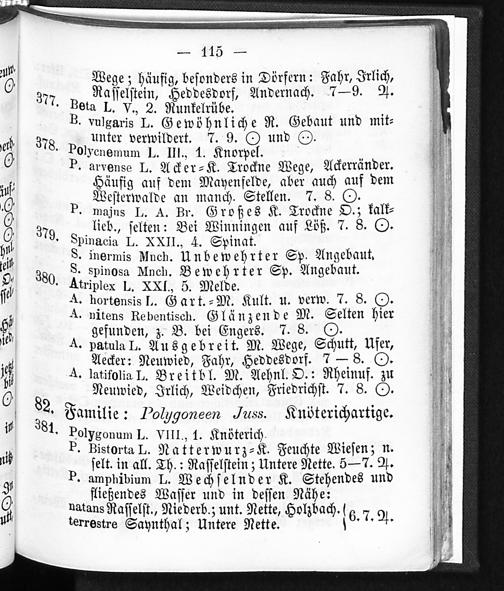 — 115 —
Wege; häufig, besonders in Dörfern: Fahr, Irlich,
Rasselstein, Heddesdorf, Andernach. 7—9. ♃.
377. Beta L. V., 2. Runkelrübe.
B. vulgaris L. Gewöhnliche R. Gebaut und mit=
unter verwildert. 7. 9. ⊙ und ⚇.
378. Polycnemum L. III., 1. Knorpel.
P. arvense L. Acker=K. Trockne Wege, Ackerränder.
Häufig auf dem Mayenfelde, aber auch auf dem
Westerwalde an manch. Stellen. 7. 8. ⊙.
P. majus L. A. Br. Großes K. Trockne O.; kalk=
lieb., selten: Bei Winningen auf Löß. 7. 8. ⊙.
379. Spinacia L. XXII., 4. Spinat.
S. inermis Mnch. Unbewehrter Sp. Angebaut,
S. spinosa Mnch. Bewehrter Sp. Angebaut.
380. Atriplex L. XXI., 5. Melde.
A. hortensis L. Gart.=M. Kult. u. verw. 7. 8. ⊙.
A. nitens Rebentisch. Glänzende M. Selten hier
gefunden, z. B. bei Engers. 7. 8. ⊙.
A. patula L. Ausgebreit. M. Wege, Schutt, Ufer,
Aecker: Neuwied, Fahr, Heddesdorf. 7 — 8. ⊙.
A. latifolia L. Breitbl. M. Aehnl. O.: Rheinuf. zu
Neuwied, Irlich, Weidchen, Friedrichst. 7. 8. ⊙.
82. Familie: Polygoneen Juss. Knöterichartige.
381. Polygonum L. VIII., 1. Knöterich.
P. Bistorta L. Natterwurz=K. Feuchte Wiesen; n.
selt. in all. Th.: Rasselstein; Untere Nette. 5—7. ♃.
P. amphibium L. Wechselnder K. Stehendes und
fließendes Wasser und in dessen Nähe:
natans Rasselst., Niederb.; unt. Nette, Holzbach. { 6. 7. ♃.
terrestre Saynthal; Untere Nette.